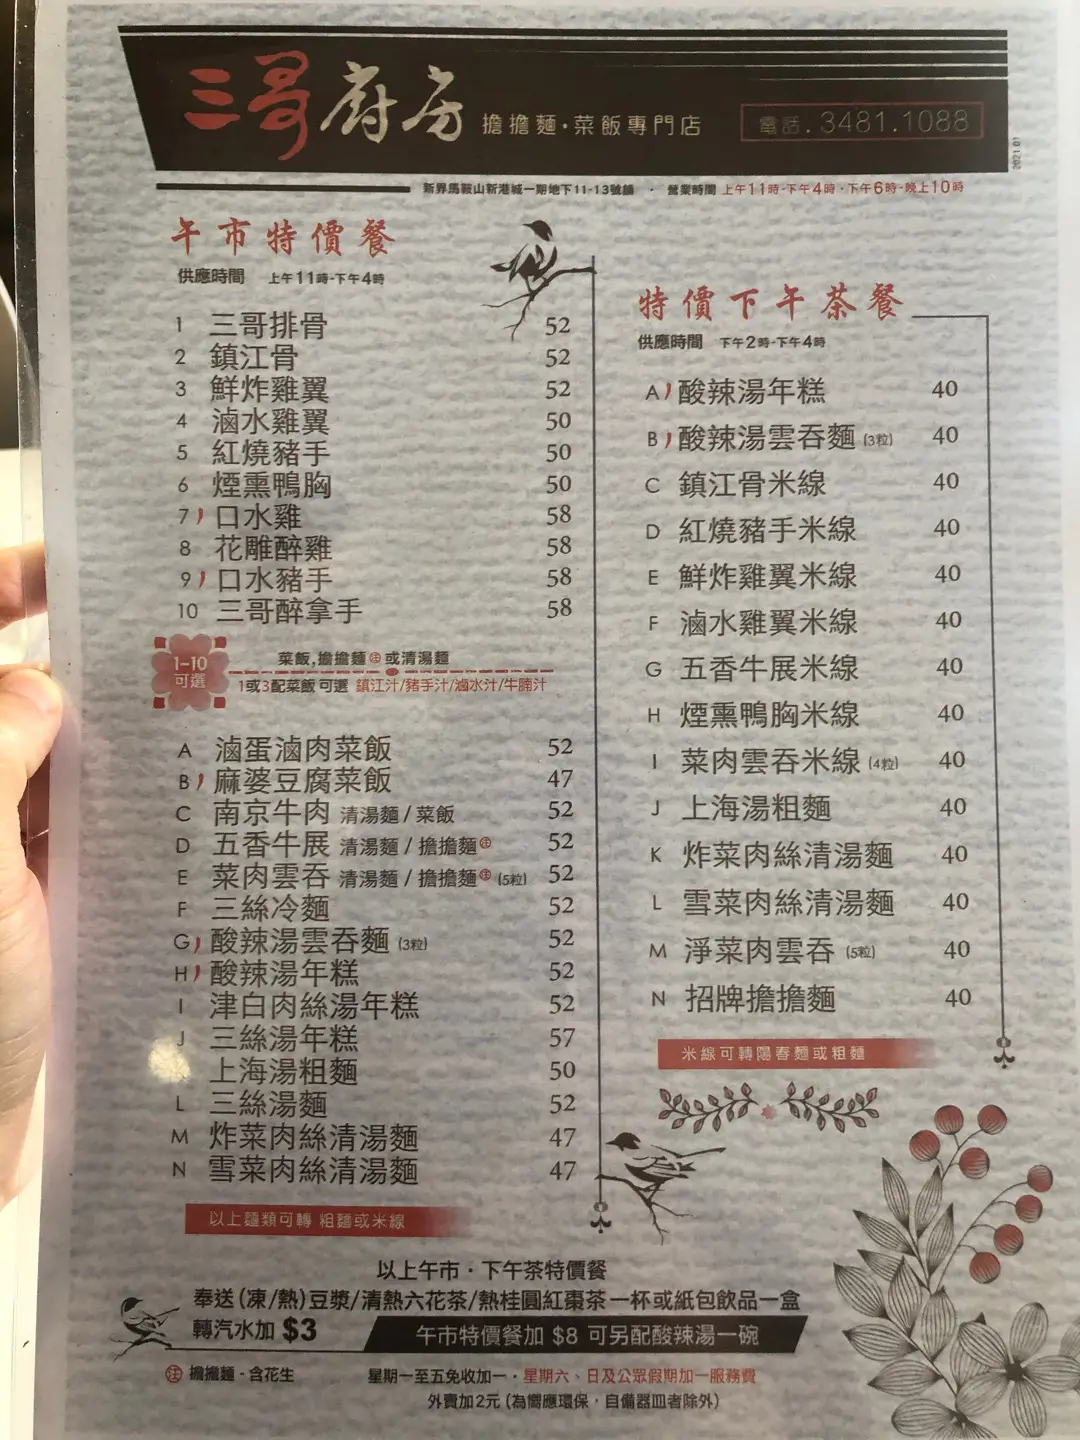 三哥廚房 擔擔麵·菜飯專門店 電話.3481.1088
2021.01
新界馬鞍山新港城一期地下11-13號舖 · 營業時間 上午11時-下午4時·下午6時-晚上10時
午市特價餐
供應時間 上午11時-下午4時
1 三哥排骨 52
2 鎮江骨 52
3 鮮炸雞翼 52
4 滷水雞翼 50
5 紅燒豬手 50
6 煙熏鴨胸 50
7 口水雞 58
8 花雕醉雞 58
9 口水豬手 58
10 三哥醉拿手 58
1-10 可選
菜飯,擔擔麵㊟或清湯麵
1或3配菜飯 可選 鎮江汁/豬手汁/滷水汁/牛腩汁
A 滷蛋滷肉菜飯 52
B 麻婆豆腐菜飯 47
C 南京牛肉 清湯麵 / 菜飯 52
D 五香牛展 清湯麵 / 擔擔麵㊟ 52
E 菜肉雲吞 清湯麵 / 擔擔麵㊟ (5粒) 52
F 三絲冷麵 52
G 酸辣湯雲吞麵 (3粒) 52
H 酸辣湯年糕 52
I 津白肉絲湯年糕 52
J 三絲湯年糕 57
上海湯粗麵 50
L 三絲湯麵 52
M 炸菜肉絲清湯麵 47
N 雪菜肉絲清湯麵 47
以上麵類可轉 粗麵或米線
特價下午茶餐
供應時間 下午2時-下午4時
A 酸辣湯年糕 40
B 酸辣湯雲吞麵 (3粒) 40
C 鎮江骨米線 40
D 紅燒豬手米線 40
E 鮮炸雞翼米線 40
F 滷水雞翼米線 40
G 五香牛展米線 40
H 煙熏鴨胸米線 40
I 菜肉雲吞米線 (4粒) 40
J 上海湯粗麵 40
K 炸菜肉絲清湯麵 40
L 雪菜肉絲清湯麵 40
M 淨菜肉雲吞 (5粒) 40
N 招牌擔擔麵 40
米線可轉陽春麵或粗麵
以上午市·下午茶特價餐
奉送(凍/熱)豆漿/清熱六花茶/熱桂圓紅棗茶一杯或紙包飲品一盒
轉汽水加 $3 午市特價餐加 $8 可另配酸辣湯一碗
㊟ 擔擔麵 - 含花生 星期一至五免收加一·星期六、日及公眾假期加一服務費
外賣加2元 (為嚮應環保，自備器皿者除外)